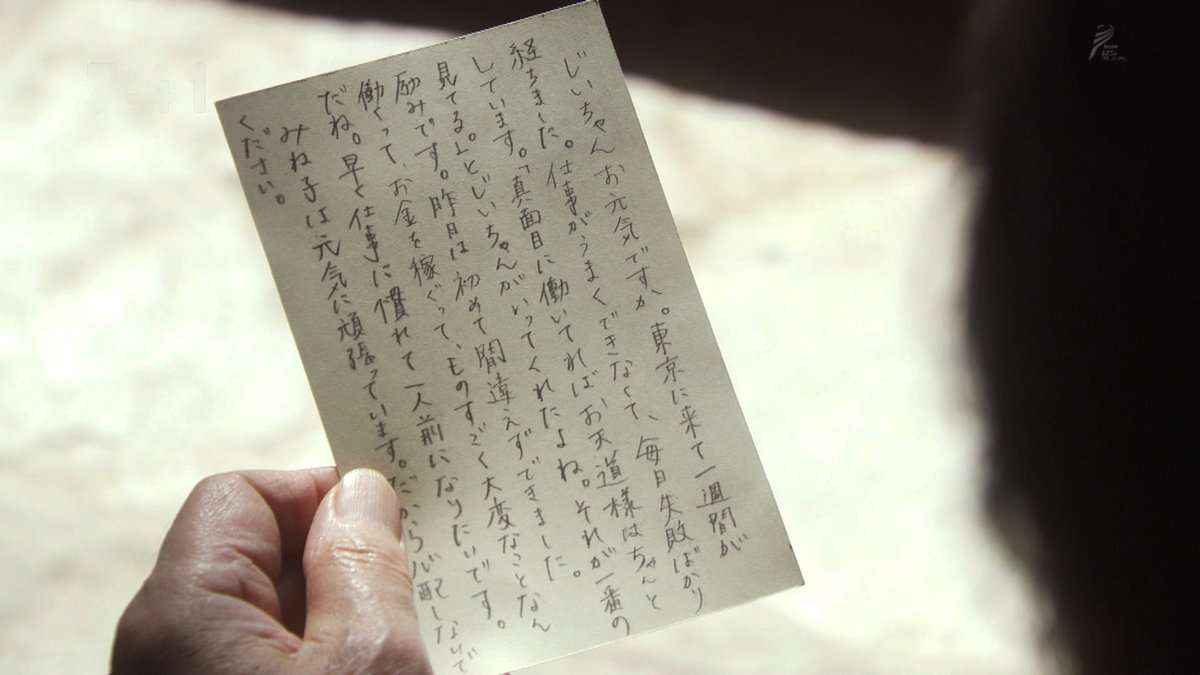 じいちゃんお元気ですか。東京に来て一週間が
経ちました。仕事がうまくできなくて、毎日失敗ばかり
しています。「真面目に働いてれば、お天道様はちゃんと
見てる。」とじいちゃんがいってくれたよね。それが一番の
励みです。昨日は初めて間違えずできました。
働くって、お金を稼ぐって、ものすごく大変なことなん
だね。早く仕事に慣れて一人前になりたいです。
みね子は元気に頑張っています。だから心配しないで
ください。